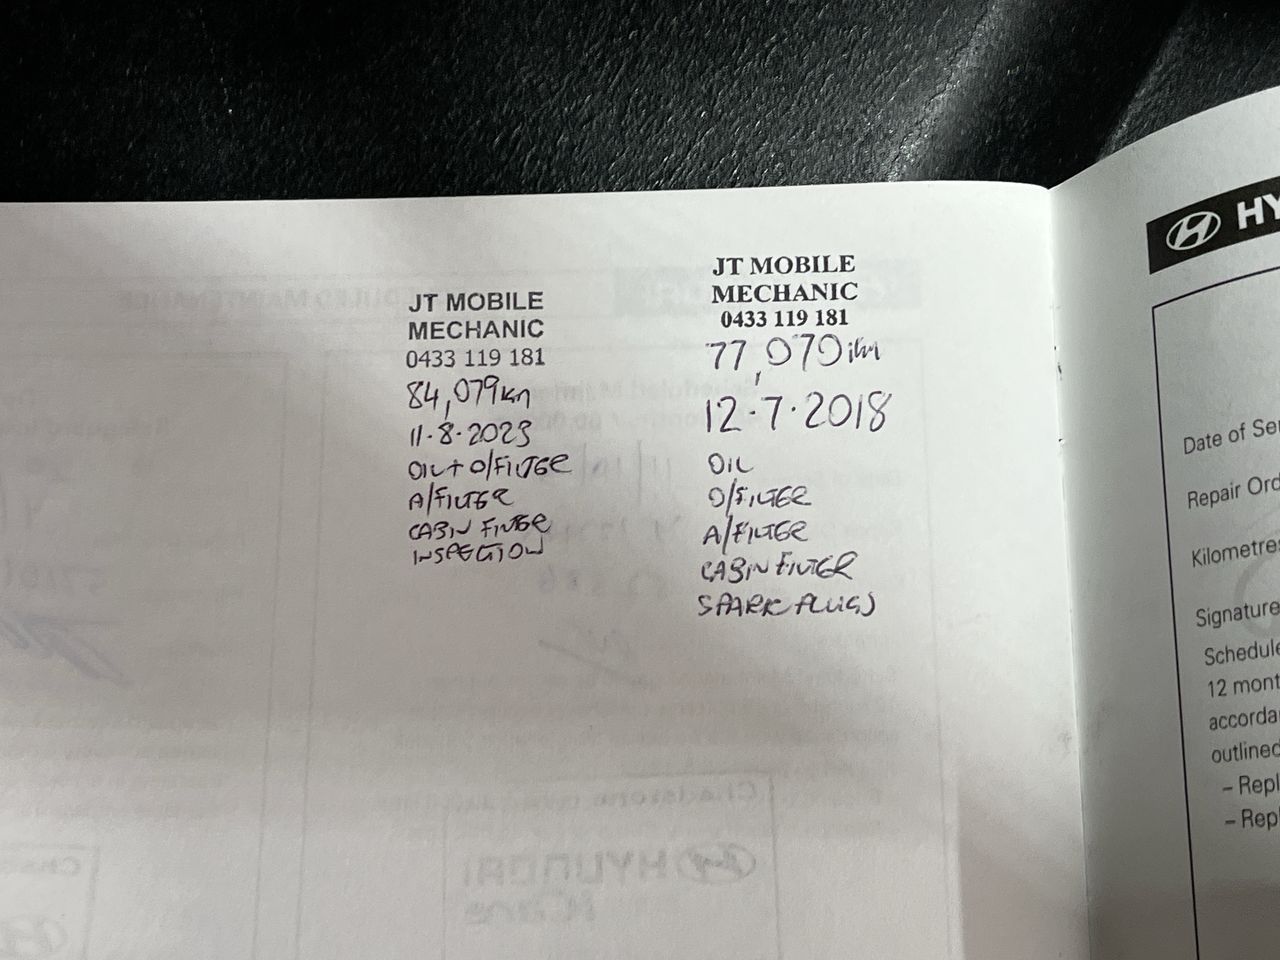 JT MOBILE
MECHANIC
0433 119 181
84,079km
11-8-2023
OIL + O/FILTER
A/FILTER
CABIN FILTER
INSPECTION
JT MOBILE
MECHANIC
0433 119 181
77,070km
12.7.2018
OIL
O/FILTER
A/FILTER
CABIN FILTER
SPARK PLUGS
HY
Date of Ser
Repair Ord
Kilometres
Signature
Schedule
12 mont
accorda
outlined
– Repl
– Repl